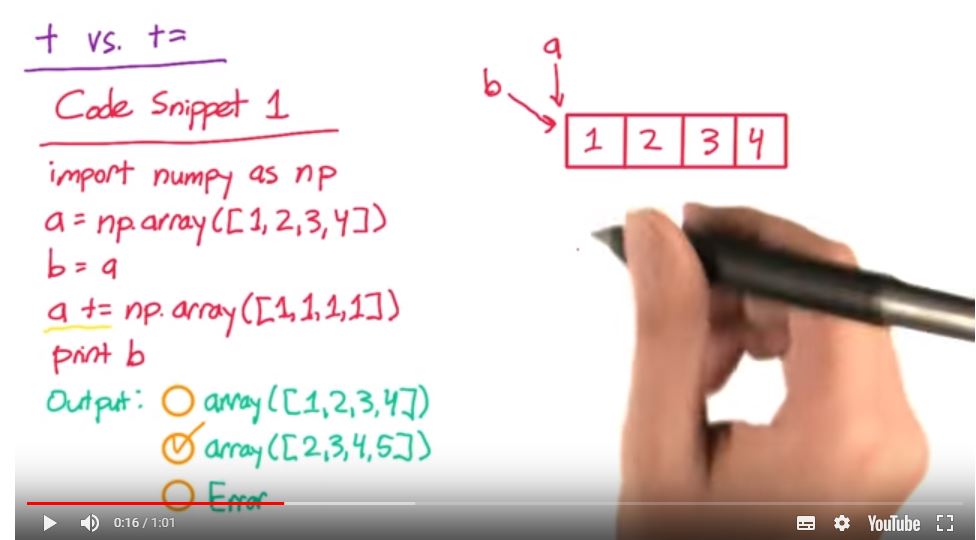 + vs. +=
Code Snippet 1
import numpy as np
a = np.array([1,2,3,4])
b = a
a += np.array([1,1,1,1])
print b
Output: array([1,2,3,4])
array([2,3,4,5])
Error
a
b
1 2 3 4
0:16 / 1:01
YouTube